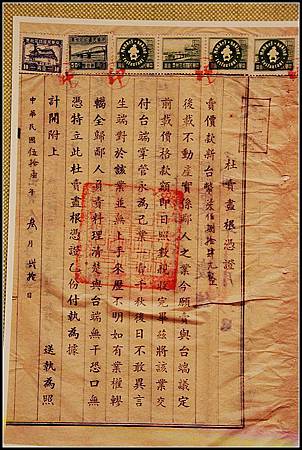 杜賣盡根憑證
賣價款新台幣
後載不動產實係鄙人之業今願賣與台端議定
前載價格款額即日照數親收完畢茲將該業交
付台端掌管永為己業一賣千秋後日不敢異言
生端對於該業並無上手來歷不明如有業權轇
轕全歸鄙人負責料理清楚與台端無干恐口無
憑特立此杜賣盡根憑證乙份付執為據
計開附上
送執為照
中華民國伍拾 年 月 拾 日